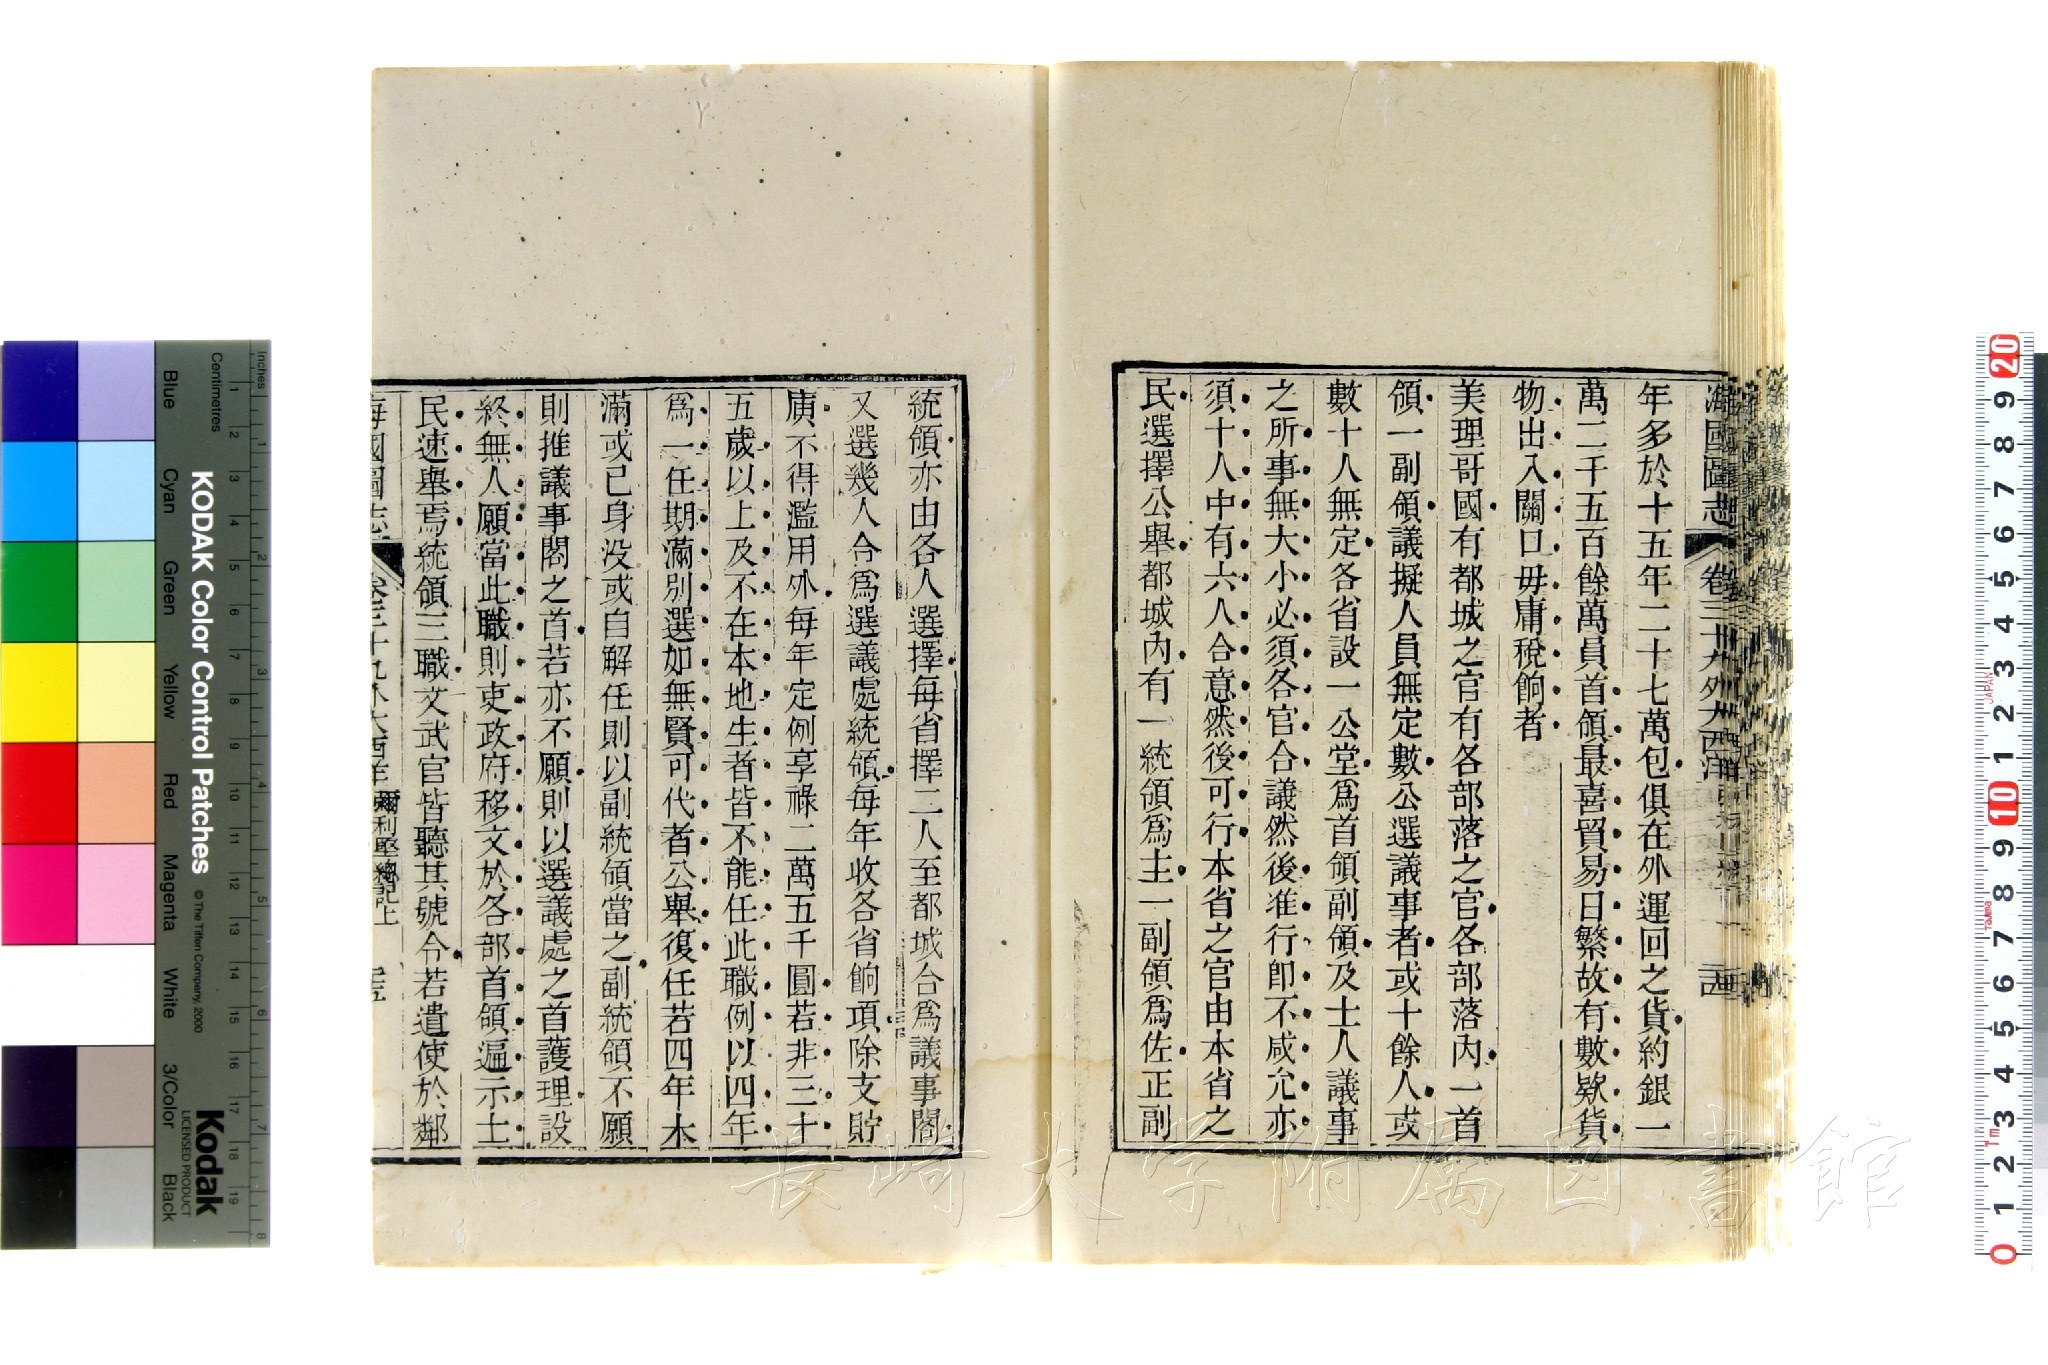 海國圖志 卷三十九外大西洋
年多於十五年二十七萬包俱在外運回之貨約銀一
萬二千五百餘萬員首領最喜貿易日繁故有數欵貨
物出入關口毋庸稅餉者
美理哥國有都城之官有各部落之官各部落內一首
領一副領議擬人員無定數公選議事者或十餘人或
數十人無定各省設一公堂為首領副領及士人議事
之所事無大小必須各官合議然後准行即不咸允亦
須十人中有六人合意然後可行本省之官由本省之
民選擇公舉都城內有一統領為主一副領為佐正副
統領亦由各人選擇每省擇二人至都城合為議事閣
又選幾人合為選議處統領每年收各省餉項除支貯
庫不得濫用外每年定例享祿二萬五千圓若非三十
五歲以上及不在本地生者皆不能任此職例以四年
為一任期滿別選如無賢可代者公舉復任若四年未
滿或已身没或自解任則以副統領當之副統領不願
則推議事閣之首若亦不願則以選議處之首護理設
終無人願當此職則吏政府移文於各部首領遍示士
民速舉焉統領三職文武官皆聽其號令若遣使於鄰
海國圖志 卷三十九外大西洋 彌利堅總記上 三五
長崎大学附属図書館
20
9
8
7
6
5
4
3
2
1
10
9
8
7
6
5
4
3
2
1
0
JAPAN
KODAK Color Control Patches
© The Tiffen Company, 2000
Kodak
LICENSED PRODUCT
Inches
Centimetres
Blue
Cyan
Green
Yellow
Red
Magenta
White
3/Color
Black